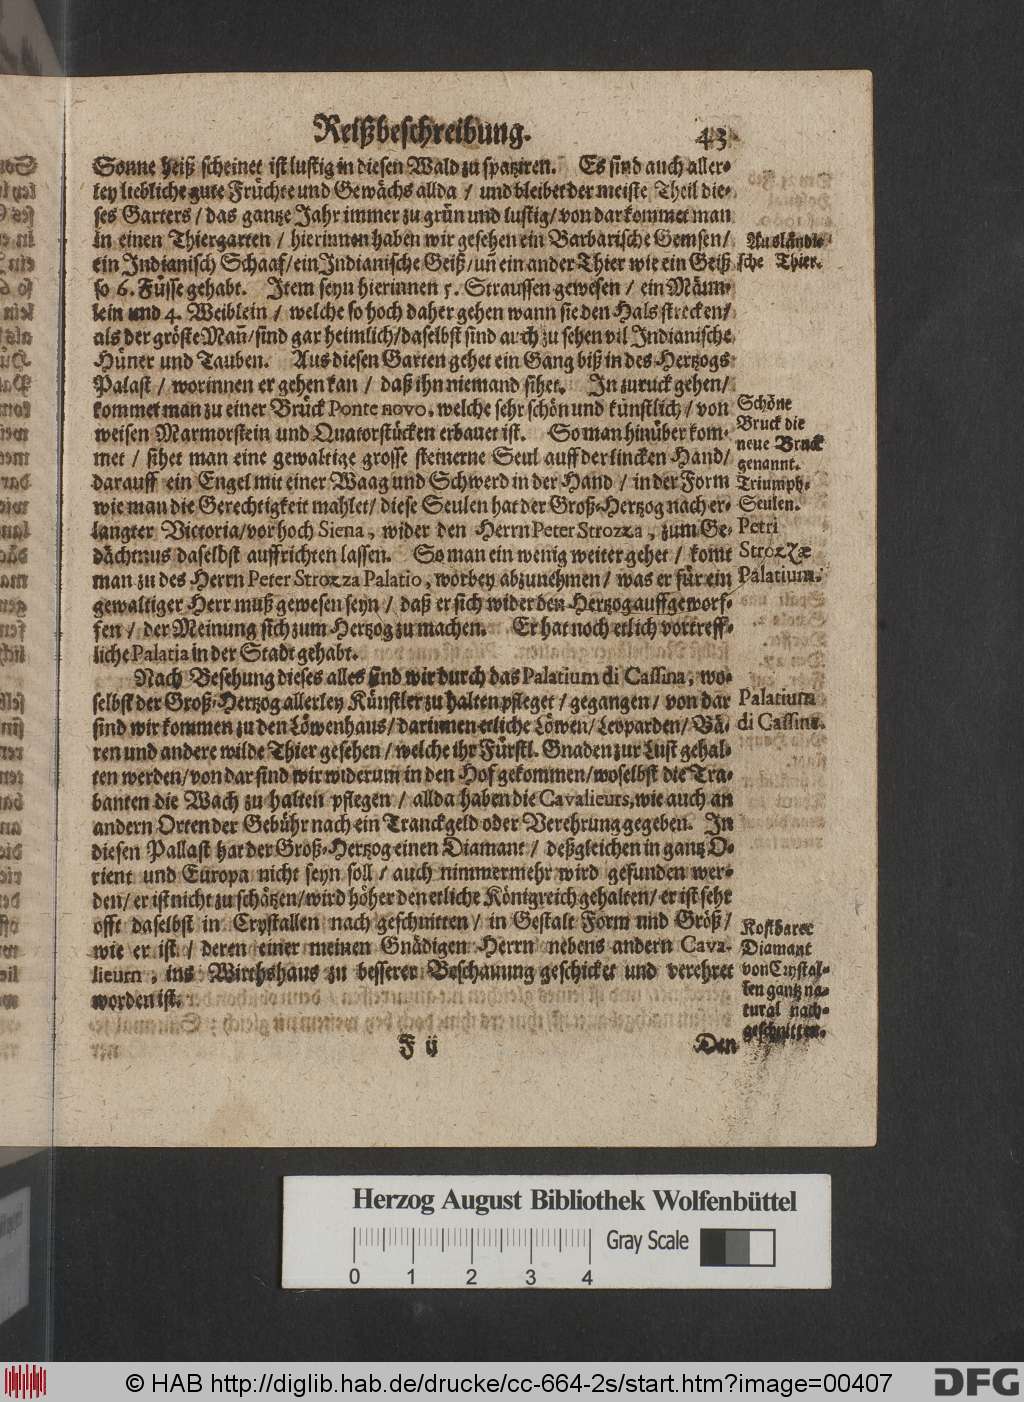 Reißbeschreibung. 43
Sonne heiß scheinet ist lustig in diesen Wald zu spatziren. Es sind auch aller-
ley liebliche gute Früchte und Gewächs allda / und bleibet der meiste Theil die-
ses Garters / das gantze Jahr immer zu grün und lustig / von dar kommet man
in einen Thiergarten / hierinnen haben wir gesehen ein Barbarische Gemsen /
ein Indianisch Schaaf / ein Indianische Geiß / uñ ein ander Thier wie ein Geiß
so 6. Füsse gehabt. Item seyn hierinnen 5. Straussen gewesen / ein Mäum-
lein und 4. Weiblein / welche so hoch daher gehen wann sie den Hals strecken /
als der gröste Mañ / sind gar heimlich / daselbst sind auch zu sehen vil Indianische
Hüner und Tauben. Aus diesen Garten gehet ein Gang biß in des Hertzogs
Palast / worinnen er gehen kan / daß ihn niemand sihet. In zuruck gehen /
kommet man zu einer Brück Ponte novo, welche sehr schön und künstlich / von
weisen Marmorstein und Quatorstücken erbauet ist. So man hinüber kom-
met / sihet man eine gewaltige grosse steinerne Seul auff der lincken Hand /
darauff ein Engel mit einer Waag und Schwerd in der Hand / in der Form
wie man die Gerechtigkeit mahlet / diese Seulen hat der Groß-Hertzog nach er-
langter Victoria / vor hoch Siena, wider den Herrn Peter Strozza, zum Ge-
dächtnus daselbst auffrichten lassen. So man ein wenig weiter gehet / komt
man zu des Herrn Peter Strozza Palatio, worbey abzunehmen / was er für ein
gewaltiger Herr muß gewesen seyn / daß er sich wider den Hertzog auffgeworf-
fen / der Meinung sich zum Hertzog zu machen. Er hat noch etlich vortreff-
liche Palatia in der Stadt gehabt.
Nach Besehung dieses alles sind wir durch das Palatium di Cassina, wo-
selbst der Groß-Hertzog allerley Künstler zu halten pfleget / gegangen / von dar
sind wir kommen zu den Löwenhaus / darinnen etliche Löwen / Leoparden / Bä-
ren und andere wilde Thier gesehen / welche ihr Fürstl. Gnaden zur Lust gehal-
ten werden / von dar sind wir widerum in den Hof gekommen / woselbst die Tra-
banten die Wach zu halten pflegen / allda haben die Cavalieurs, wie auch an
andern Orten der Gebühr nach ein Tranckgeld oder Verehrung gegeben. In
diesen Pallast hat der Groß-Hertzog einen Diamant / deßgleichen in gantz O-
rient und Europa nicht seyn soll / auch nimmermehr wird gefunden wer-
den / er ist nicht zu schätzen / wird höher den etliche Königreich gehalten / er ist sehr
offt daselbst in Crystallen nach geschnitten / in Gestalt Form und Größ /
wie er ist / deren einer meinen Gnädigen Herrn nebens andern Cava-
lieurn, ins Wirthshaus zu besserer Beschauung geschicket und verehret
worden ist.
F ij Den
Ausländi-
sche Thier.
Schöne
Bruck die
neue Bruck
genannt.
Triumph-
Seulen.
Petri
Strozzæ
Palatium.
Palatium
di Cassina.
Kostbarer
Diamant
von Crystal-
len gantz na-
tural nach-
geschnitten.
Herzog August Bibliothek Wolfenbüttel
Gray Scale
0 1 2 3 4
© HAB http://diglib.hab.de/drucke/cc-664-2s/start.htm?image=00407
DFG